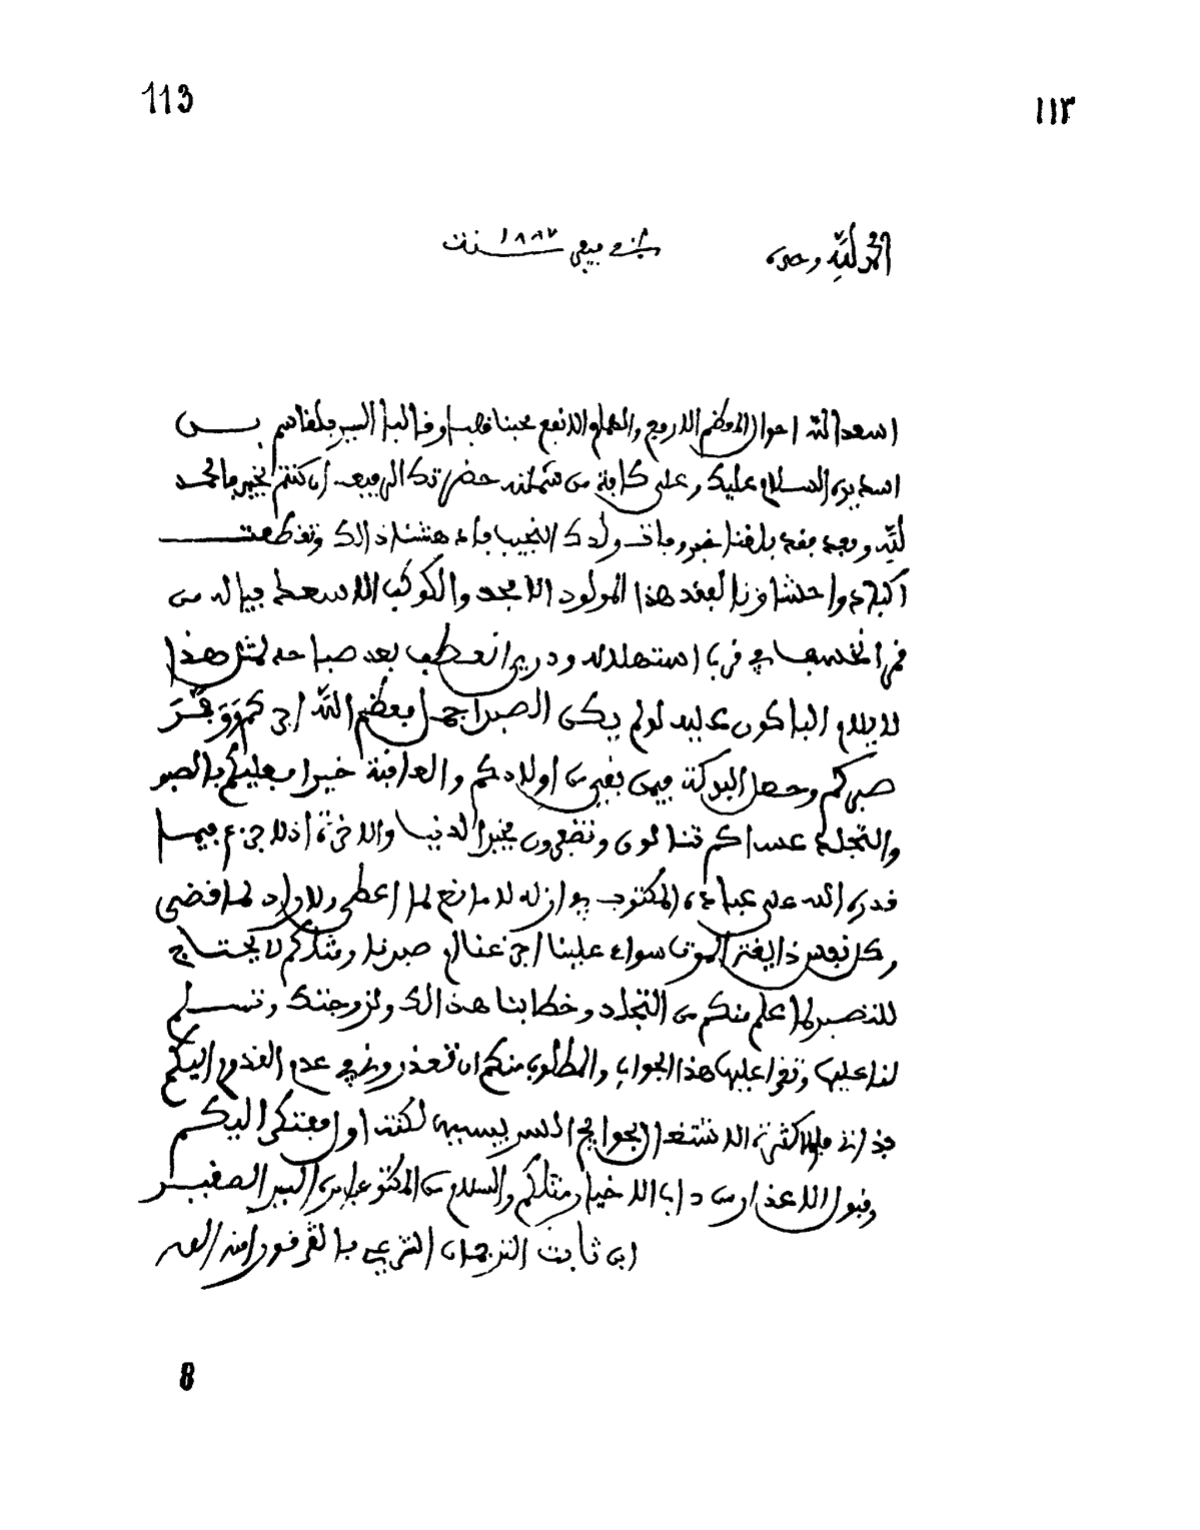 113
١١٣
الحمد لله وحده
في ٢٠ فيفري سنة ١٨٨٧
اسعد الله احوال المعظم الاروع والهمام الانفع محبنا قلبا وقالبا السيد بلقاسم بن
اسديره السلام عليك وعلى كافة من شملته حضرتك الرفيعه ان كنتم بخير فالحمد
لله وبعد فقد بلغنا خبر وفات ولدك النجيب فادهشنا ذالك وتقطعت
اكبادنا واحشاؤنا لفقد هذا المولود الامجد والكوكب الاسعد فيا له من
قمر انخسف في قرب استهلاله ودري انعطب بعد صباحه لمثل هذا
لا يلام الباكون عليه لو لم يكن الصبر اجمل فعظم الله اجركم ووفر
صبركم وجعل البركة فيمن بقي من اولادكم والعاقبة خيرا فعليكم بالصبر
والتجلد عساكم تنالون وتنفعون بخير الدنيا والاخرة اذ لا جزع فيما
قدره الله على عباده المكتوب في ازله لا مانع لما اعطى ولا راد لما قضى
وكل نفس ذايقة الموت سواء علينا اجزعنا ام صبرنا ومثلكم لا يحتاج
للتصبر لما علم منكم من التجلد وخطابنا هذا لك ولزوجتك وتسلم
لنا عليها وتقرا عليها هذا الجواب والمطلوب منكم ان تعذرونا في عدم القدوم اليكم
بذاتنا فلولا كثرة الاشتغال بحوايج السر بسببه لكنت اول مبتكر اليكم
وقبول الاعذار من داب الاخيار مثلكم والسلام من المكتوب عن امره السيد الصغير
ابن ثابت الترجمان الشرعي بالقرقور امنه الله
8